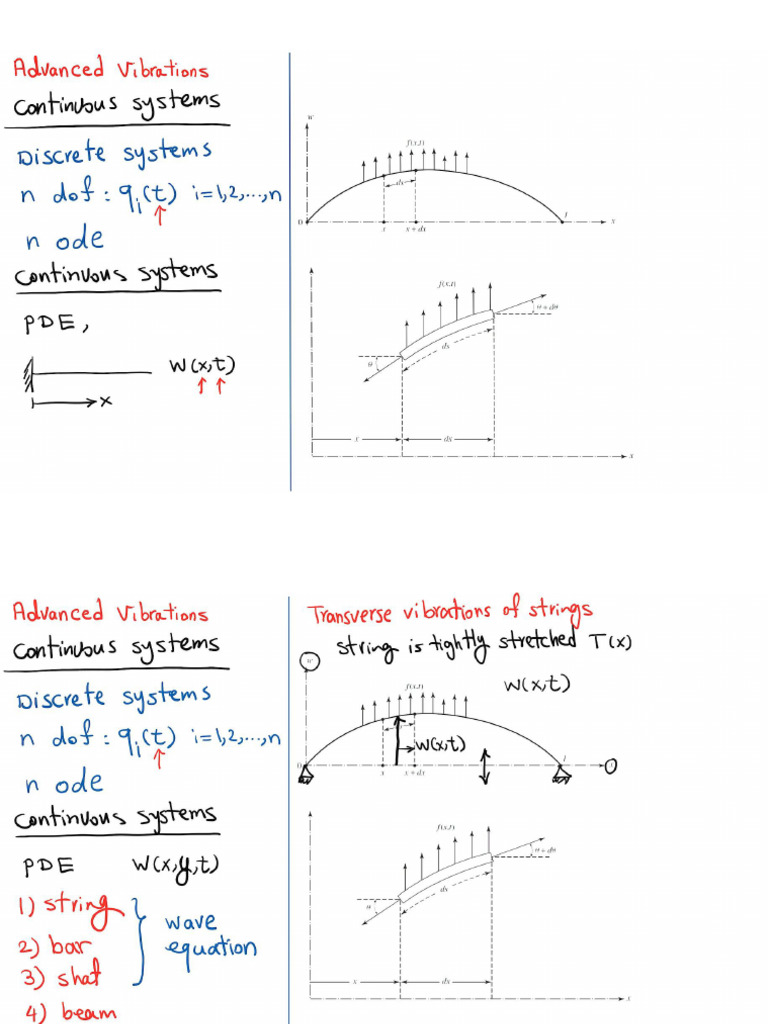 Advanced Vibrations
Continuous systems
Discrete systems
n dof : qi(t) i=1,2,...,n
n ode
Continuous systems
PDE,
W(x,t)
x
w
f(x,t)
dx
0
x
x + dx
l
x
f(x,t)
θ + dθ
ds
θ
x
dx
x
Advanced Vibrations
Continuous systems
Discrete systems
n dof : qi(t) i=1,2,...,n
n ode
Continuous systems
PDE W(x,y,t)
1) string
2) bar
3) shat
4) beam
wave
equation
Transverse vibrations of strings
string is tightly stretched T(x)
w
W(x,t)
f(x,t)
W(x,t)
0
x
x + dx
l
f(x,t)
θ + dθ
ds
θ
x
dx
x